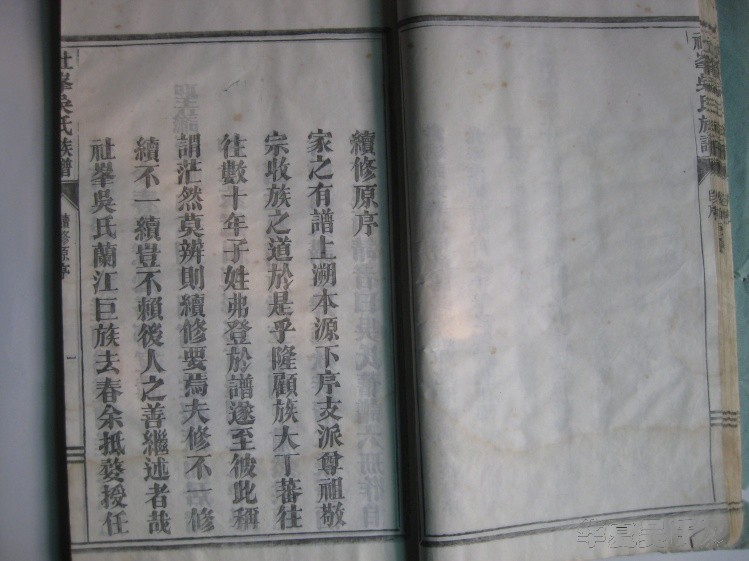 社峯吳氏族譜
續修原序
家之有譜上溯本源下序支派尊祖敬
宗收族之道於是乎隆顧族大丁蕃往
往數十年子姓弗登於譜遂至彼此稱
謂茫然莫辨則續修要焉夫修不一修
續不一續豈不賴後人之善繼述者哉
社峯吳氏蘭江巨族去春余抵婺授任
社峯吳氏族譜
續修原序
一